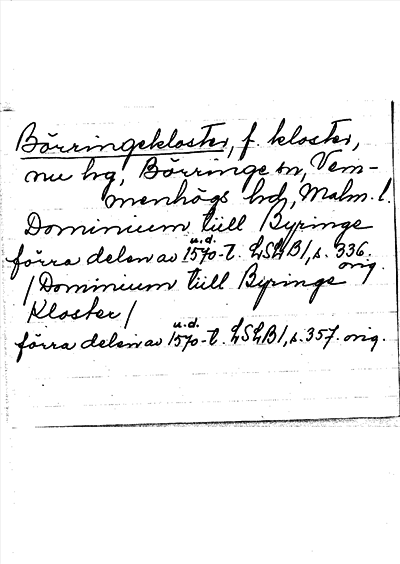 Börringekloster, f. kloster,
nu hg, Börringe sn, Vem-
menhögs hd, Malm. l.
Dominium tüll Byringe
u.d.
förra delen av 1570-t. LSLB1, s. 336.
orig.
/Dominium tüll Byringe
Kloster/
u.d.
förra delen av 1570-t. LSLB1, s. 357. orig.